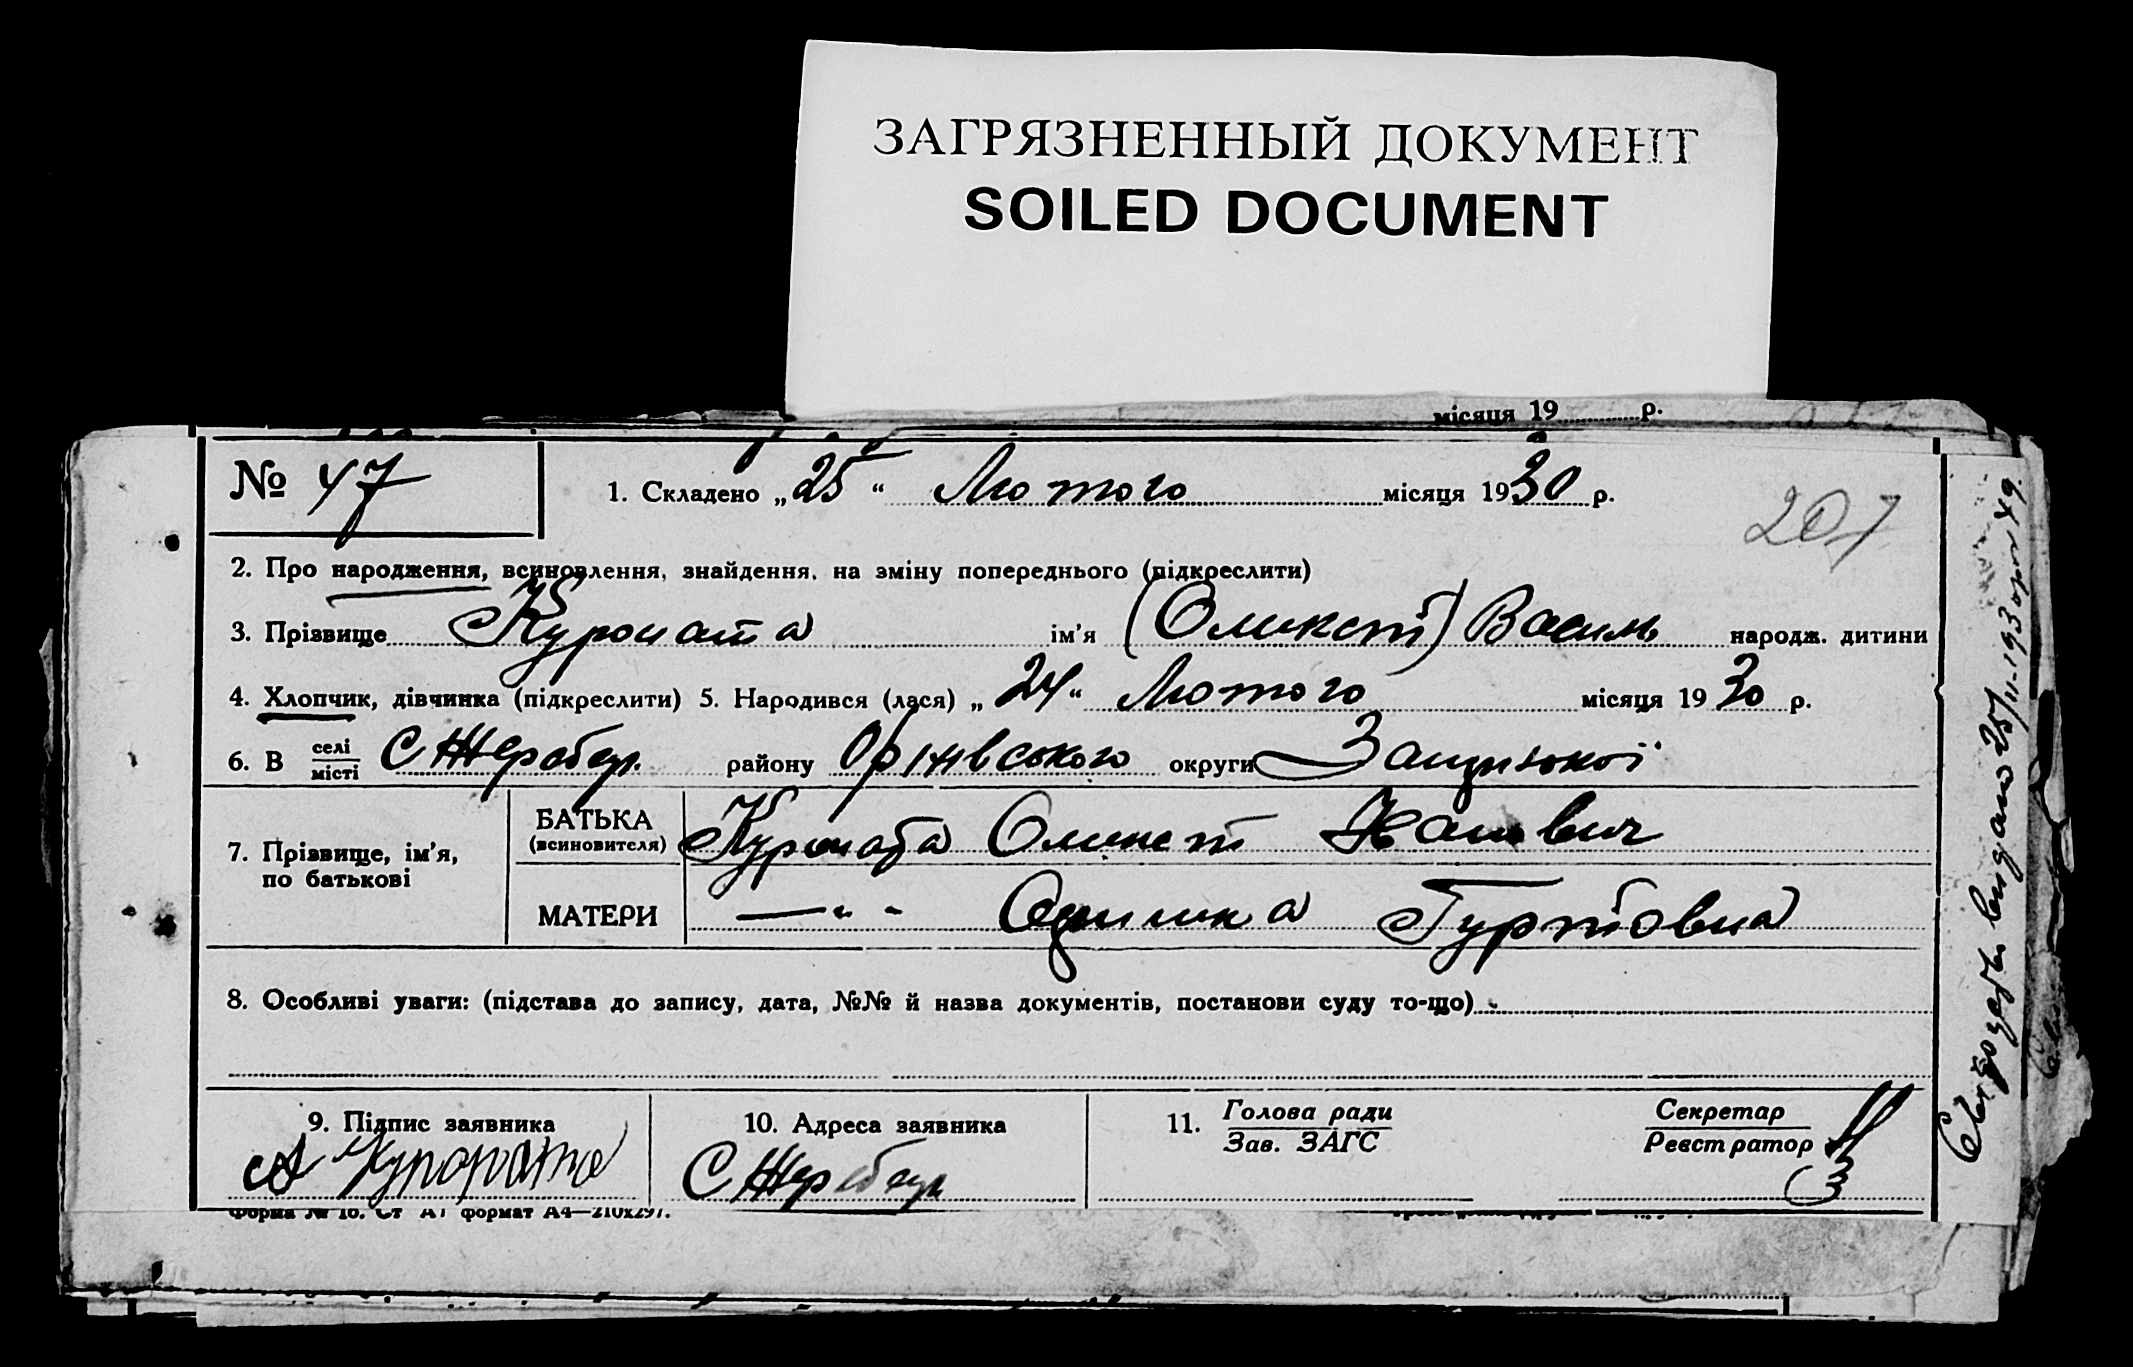 ЗАГРЯЗНЕННЫЙ ДОКУМЕНТ
SOILED DOCUMENT
місяця 19 р.
№ 47
1. Складено „ 25 “ Лютого місяця 1930 р.
207
2. Про народження, всиновлення, знайдення, на зміну попереднього (підкреслити)
3. Прізвище Куропата ім'я (Олексій) Василь народж. дитини
4. Хлопчик, дівчинка (підкреслити) 5. Народився (лася) „ 24 “ Лютого місяця 1930 р.
6. В селі місті С Жеребец району Оріхівського округи
7. Прізвище, ім'я, по батькові
БАТЬКА (всиновителя) Куропата
МАТЕРИ —"-
8. Особливі уваги: (підстава до запису, дата, №№ й назва документів, постанови суду то-що)
9. Підпис заявника
10. Адреса заявника
11. Голова ради Зав. ЗАГС
Секретар Реєстратор
А Куропата
С Жеребец
Форма № 16. Ст А1 формат А4—210х297.